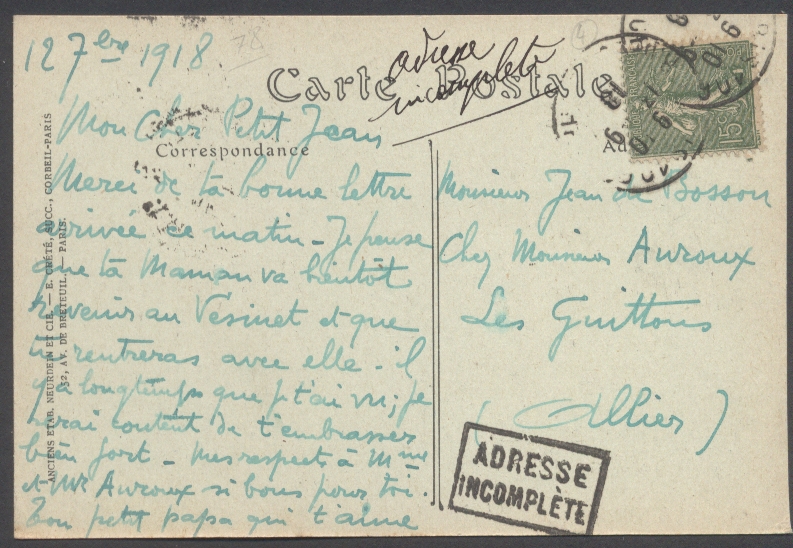 12 7bre 1918
78
4
adresse
incomplète
Carte Postale
Mon Cher Petit Jean
Correspondance
Merci de ta bonne lettre
arrivée ce matin - Je pense
que ta Maman va bientôt
revenir au Vesinet et que
tu rentreras avec elle - il
y a longtemps que je t'ai vu ; je
serai content de t'embrasser
bien fort - Mes respects à Mme
et Mr Auroux si bons pour toi.
Ton petit papa qui t'aime
Monsieur Jean du Bosson
Chez Monsieur Auroux
Les Guittons
(Allier)
ADRESSE
INCOMPLÈTE
ANCIENS ETAB. NEURDEIN ET CIE. — E. CRÉTÉ, SUCC., CORBEIL-PARIS
52, AV. DE BRETEUIL. — PARIS.
15c